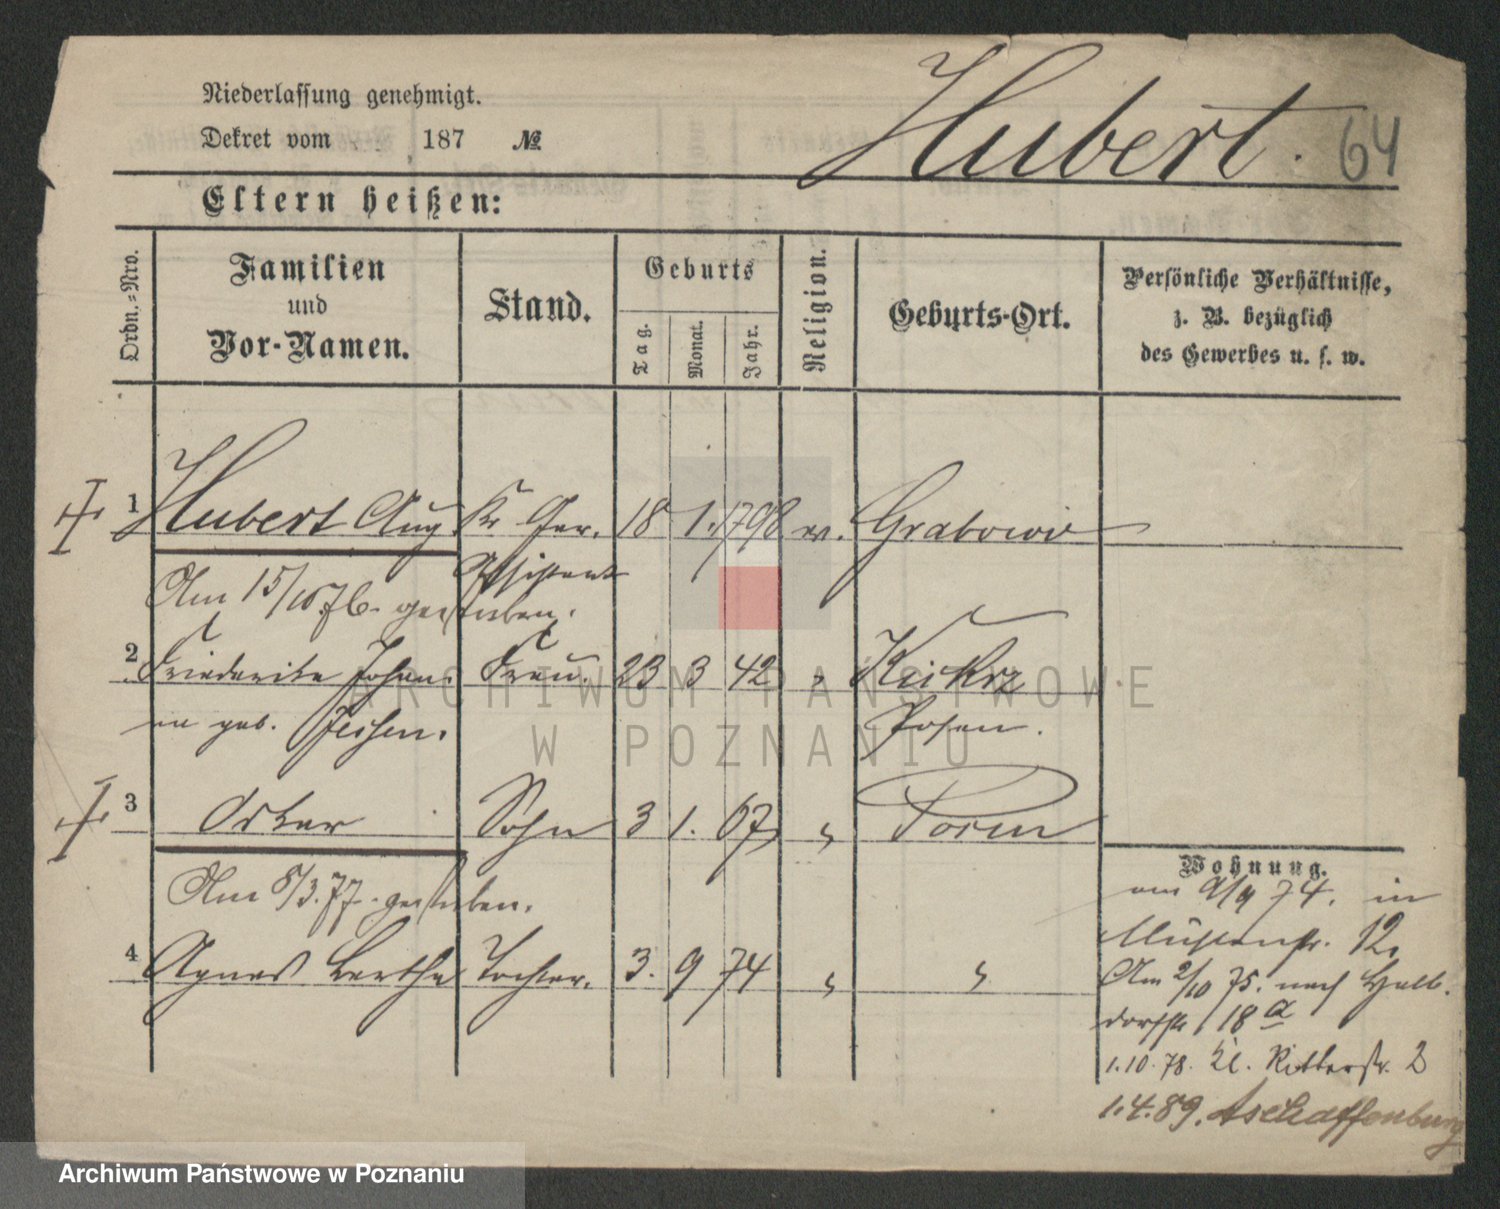 Niederlassung genehmigt.
Dekret vom 187 №
Hubert. 64
Eltern heißen:
Ordn.=Nro.
Familien
und
Vor-Namen.
Stand.
Geburts
Tag.
Monat.
Jahr.
Religion.
Geburts-Ort.
Persönliche Verhältnisse,
z. B. bezüglich
des Gewerbes u. s. w.
1 Hubert Aug. Kr. Ger. 18 1. 1798 ev. Grabowie
Assistent
Am 15/10 76. gestorben.
2 Friederike Johan- Frau. 23 3 42 " Kiekrz
na geb. Jeschen. Posen.
3 Oskar Sohn 3 1. 67 " Posen
Am 8/3. 77. gestorben.
4 Agnes Bertha Tochter. 3. 9 74 " "
Wohnung.
am 9/9 74. in
Mühlenstr. 12.
Am 2/10 75. nach Halb-
dorfstr 18 a
1.10.78. Kl. Ritterstr. 2
1.4.89. Aschaffenburg
ARCHIWUM PAŃSTWOWE
W POZNANIU
Archiwum Państwowe w Poznaniu